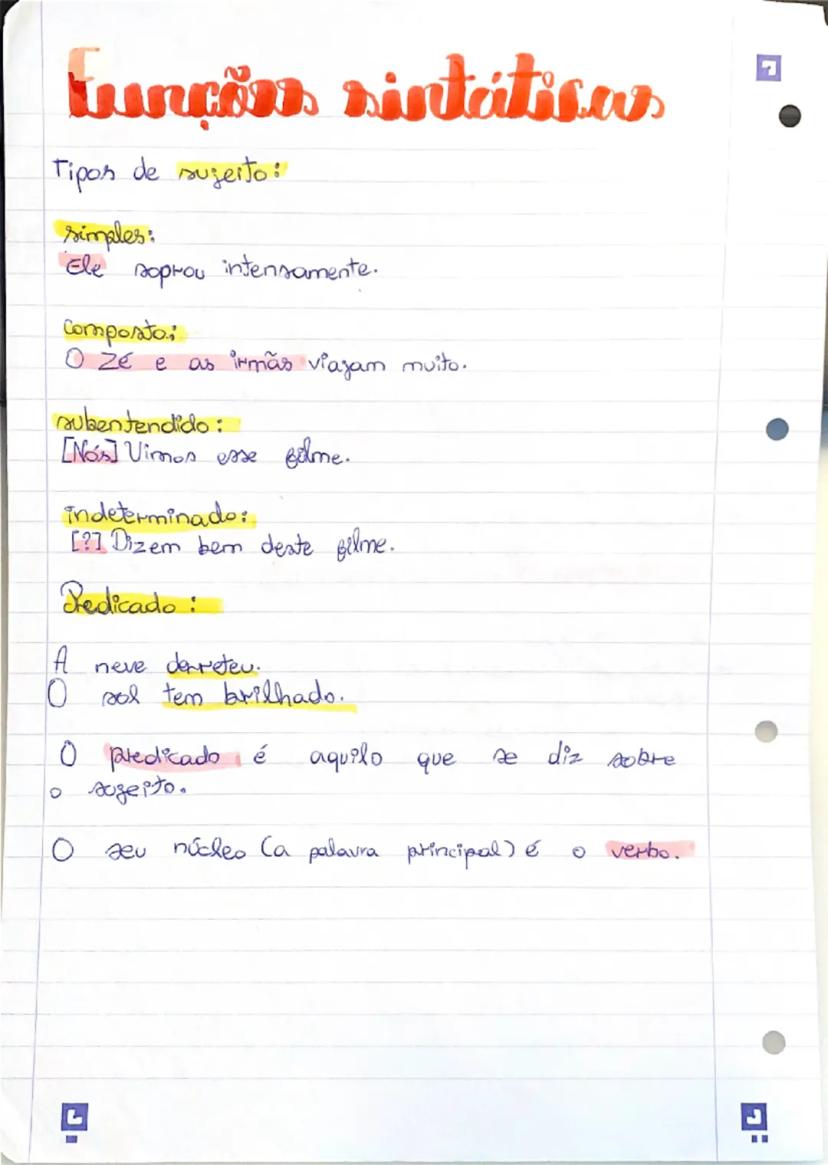 Funções sintáticas
Tipos de sujeito:
simples:
Ele soprou intensamente.
Composto:
O Zé e as irmãs viajam muito.
subentendido:
[Nós] Vimos esse filme.
indeterminado:
[?] Dizem bem deste filme.
Predicado:
A neve derreteu.
O sol tem brilhado.
O predicado é aquilo que se diz sobre
o sujeito.
O seu núcleo (a palavra principal) é o verbo.